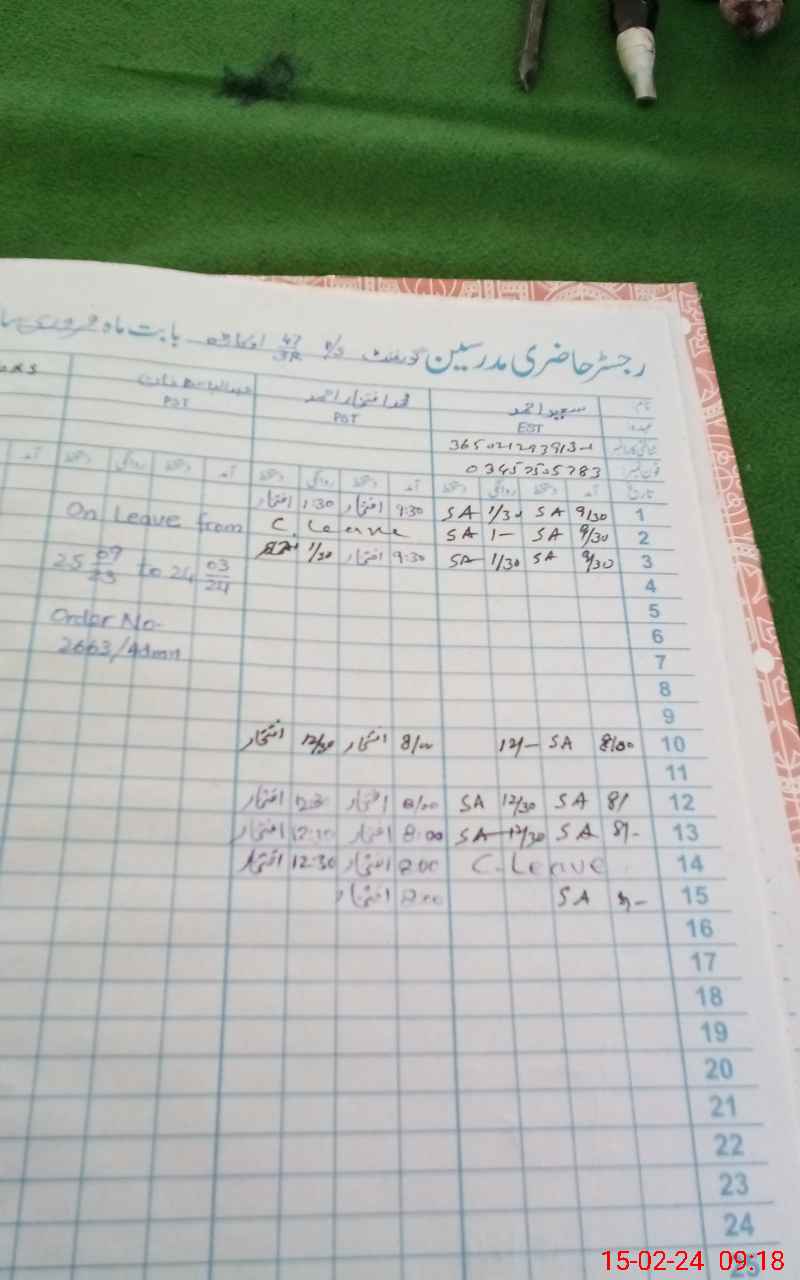 رجسٹر حاضری مدرسین گورنمنٹ P/S 47/3R اوکاڑہ بابت ماہ فروری
نام سعید احمد محمد افتخار احمد
عہدہ EST PST PST
شناختی کارڈ نمبر
فون نمبر
تاریخ آمد دستخط روانگی دستخط آمد دستخط روانگی دستخط آمد دستخط روانگی دستخط آمد
1 9/30 SA 1/30 SA 9:30 افتخار 1:30 افتخار
2 9/30 SA 1- SA C. Leave On Leave from
3 9/30 SA 1/30 SA 9:30 افتخار 1/30
25 09/23 to 24 03/24
4
5
Order No.
6
2663/Admn
7
8
9
10 8/00 SA 12/- 8/00 افتخار 12/30 افتخار
11
12 8/ SA 12/30 SA 8/00 افتخار افتخار
13 8/- SA 12/30 SA 8:00 افتخار افتخار
14 C. Leave 8:00 افتخار 12:30 افتخار
15 SA افتخار
16
17
18
19
20
21
22
23
24
25
15-02-24 09:18